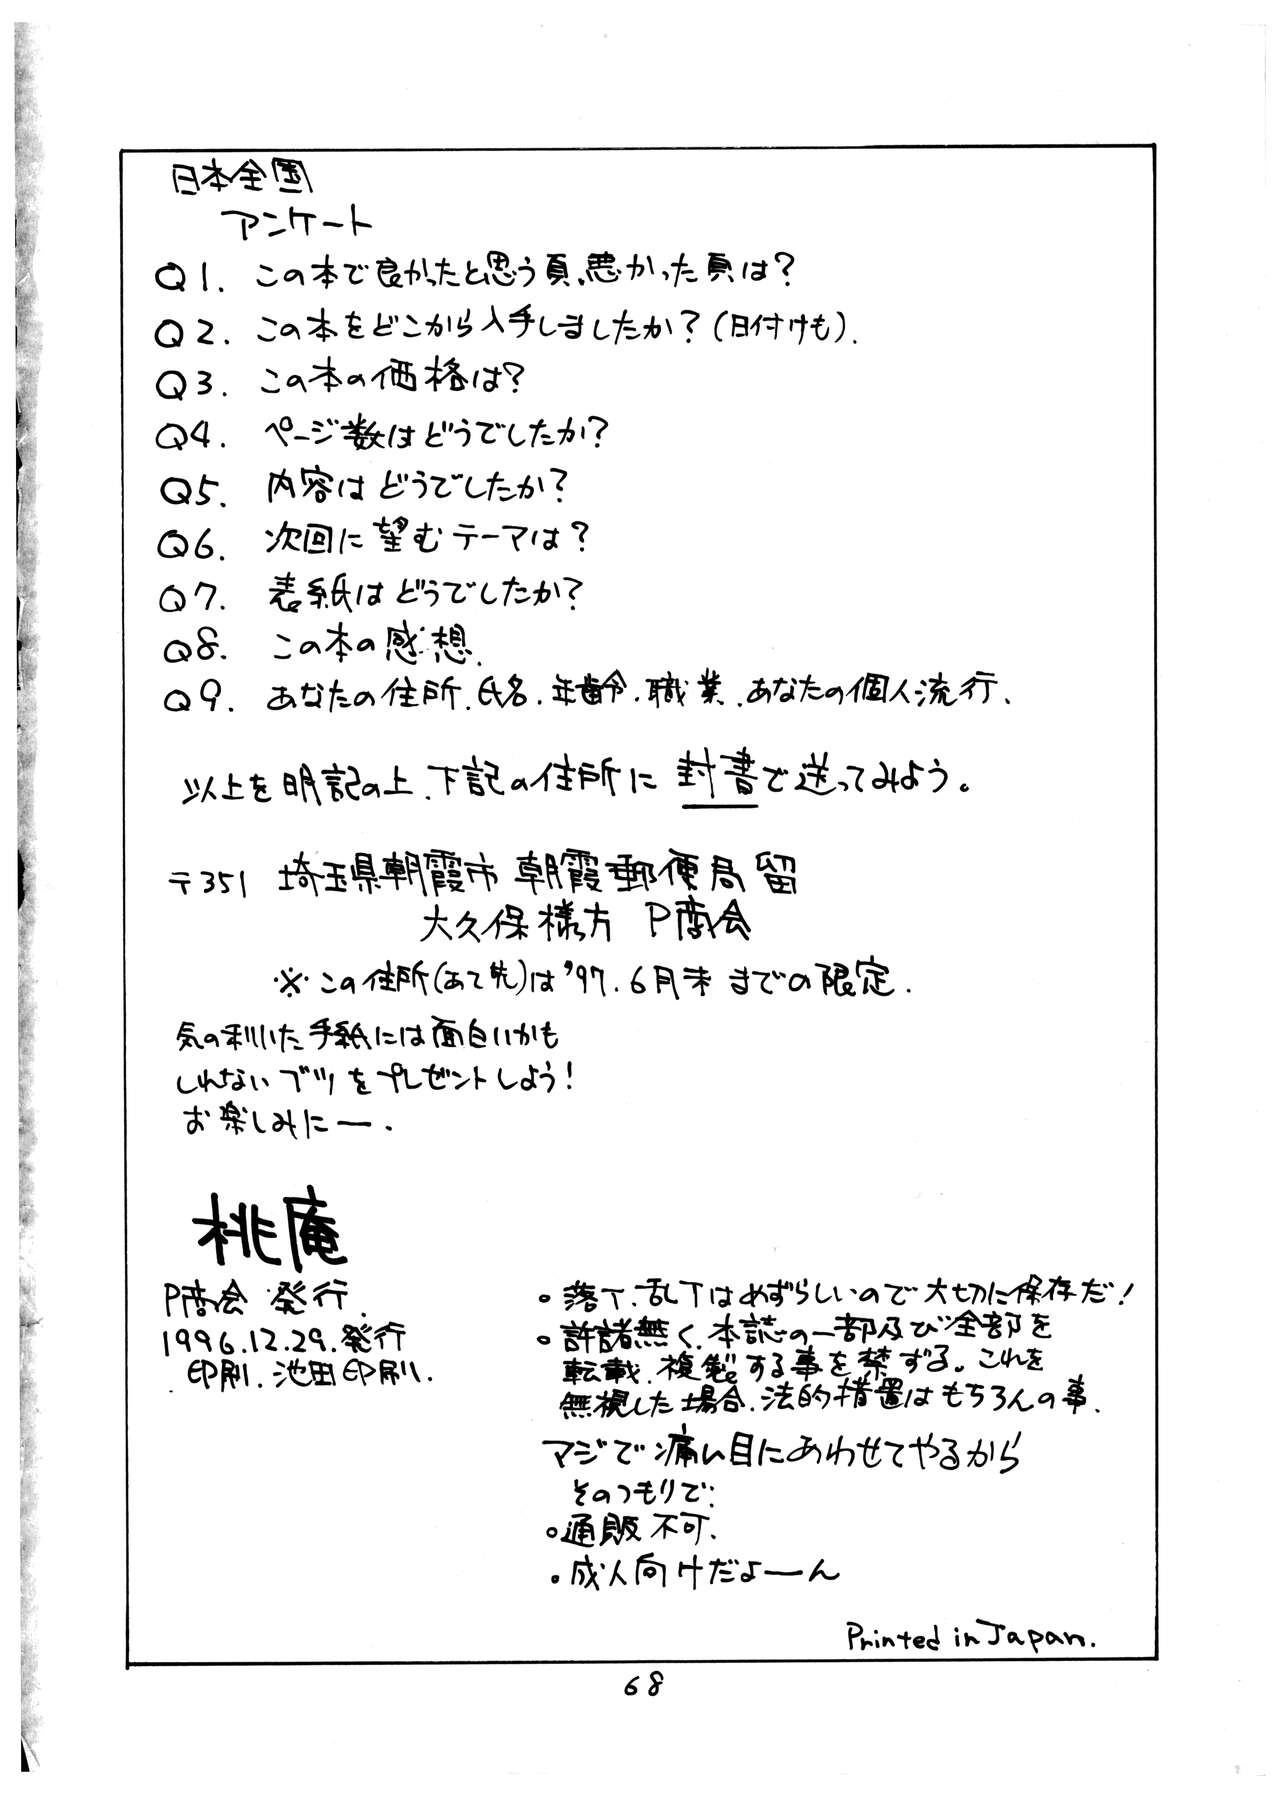 日本全国
アンケート
Q1. この本で良かったと思う頁、悪かった頁は？
Q2. この本をどこから入手しましたか？(日付けも).
Q3. この本の価格は？
Q4. ページ数はどうでしたか？
Q5. 内容はどうでしたか？
Q6. 次回に望むテーマは？
Q7. 表紙はどうでしたか？
Q8. この本の感想.
Q9. あなたの住所.氏名.年齢.職業.あなたの個人流行.
以上を明記の上.下記の住所に封書で送ってみよう。
〒351 埼玉県朝霞市 朝霞郵便局留
大久保様方 P商会
※この住所(あて先)は'97.6月末までの限定.
気の利いた手紙には面白いかも
しれないブツをプレゼントしよう!
お楽しみにー.
桃庵
P商会 発行.
1996.12.29.発行
印刷.池田印刷.
・落丁.乱丁はめずらしいので大切に保存だ!
・許諾無く.本誌の一部及び全部を
転載.複製する事を禁ずる。これを
無視した場合.法的措置はもちろんの事.
マジで痛い目にあわせてやるから
そのつもりで.
・通販不可.
・成人向けだよーん
Printed in Japan.
68